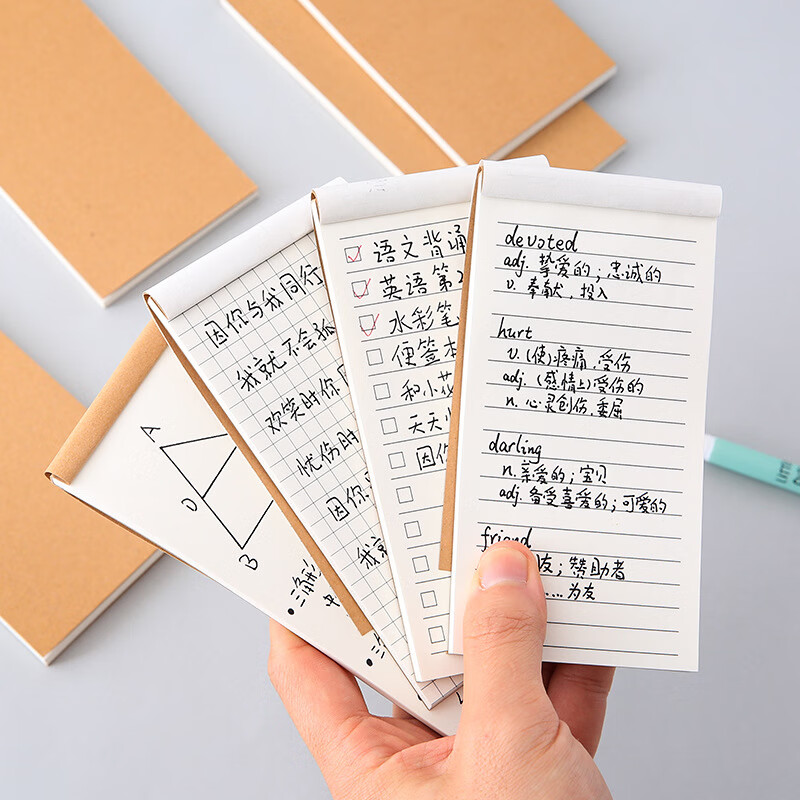 A
D
B
三角形
因你与我同行
我就不会孤
欢笑时你
忧伤时
因你
我就
语文背诵
英语第2
水彩笔
便签本
和小花
天天
因你
devoted
adj. 挚爱的；忠诚的
v. 奉献，投入
hurt
v. (使)疼痛，受伤
adj. (感情上)受伤的
n. 心灵创伤，委屈
darling
n. 亲爱的；宝贝
adj. 备受喜爱的；可爱的
friend
友；赞助者
....为友
LITTL